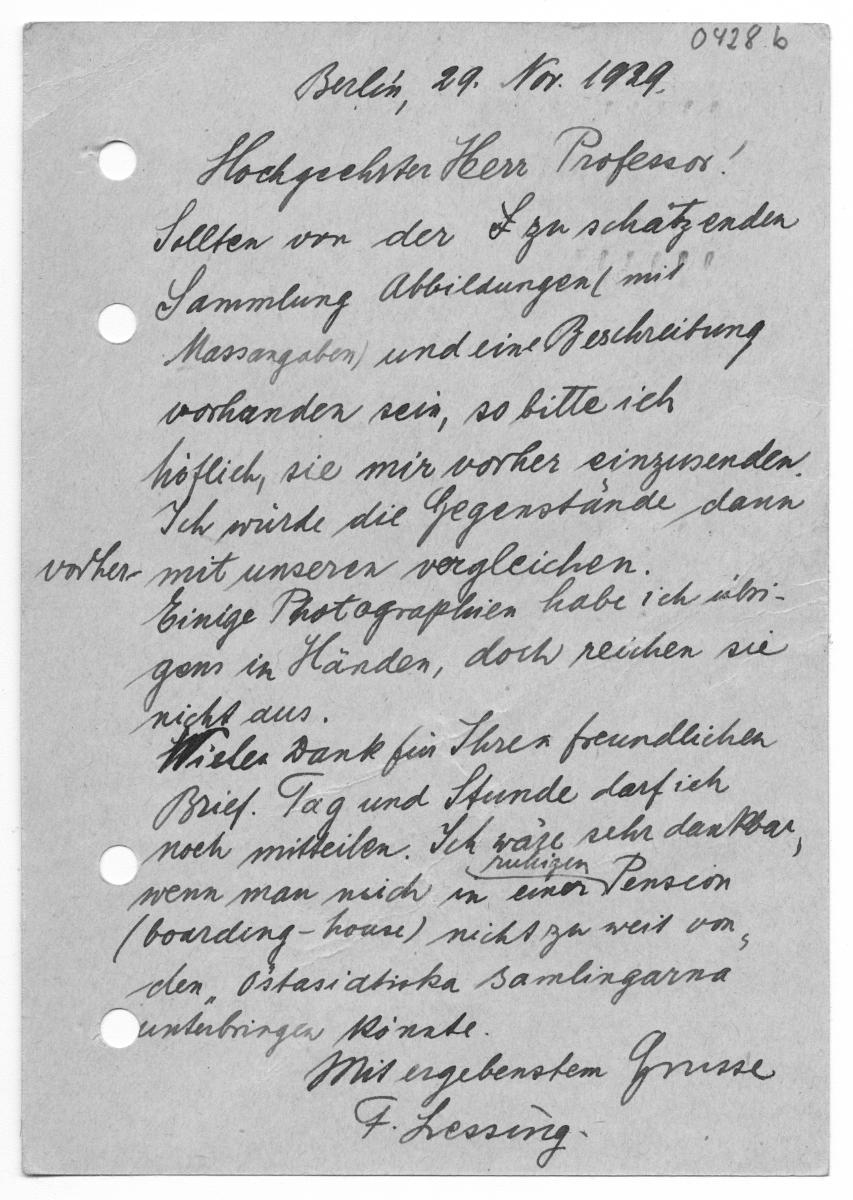 0428 b
Berlin, 29. Nov. 1929.
Hochgeehrter Herr Professor!
Sollten von der zu schätzenden
Sammlung Abbildungen (mit
Massangaben) und eine Beschreibung
vorhanden sein, so bitte ich
höflich, sie mir vorher einzusenden.
Ich würde die Gegenstände dann
vorher mit unseren vergleichen.
Einige Photographien habe ich übri-
gens in Händen, doch reichen sie
nicht aus.
Vielen Dank für Ihren freundlichen
Brief. Tag und Stunde darf ich
noch mitteilen. Ich wäre sehr dankbar,
wenn man mich in einer ruhigen Pension
(boarding-house) nicht zu weit von
den „Östasiatiska Samlingarna"
unterbringen könnte.
Mit ergebenstem Grusse
F. Lessing.